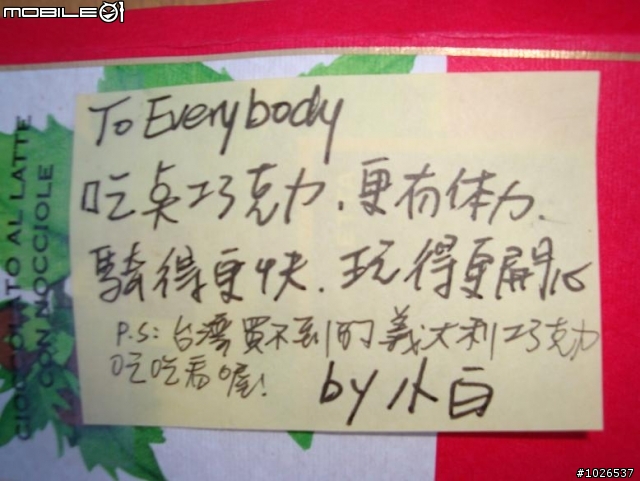 MOBILE01
To Everybody
吃点巧克力，更有体力，
騎得更快，玩得更開心
P.S：台灣買不到的義大利巧克力
吃吃看喔！
by 小白
CIOCCOLATO AL LATTE
CON NOCCIOLE
#1026537